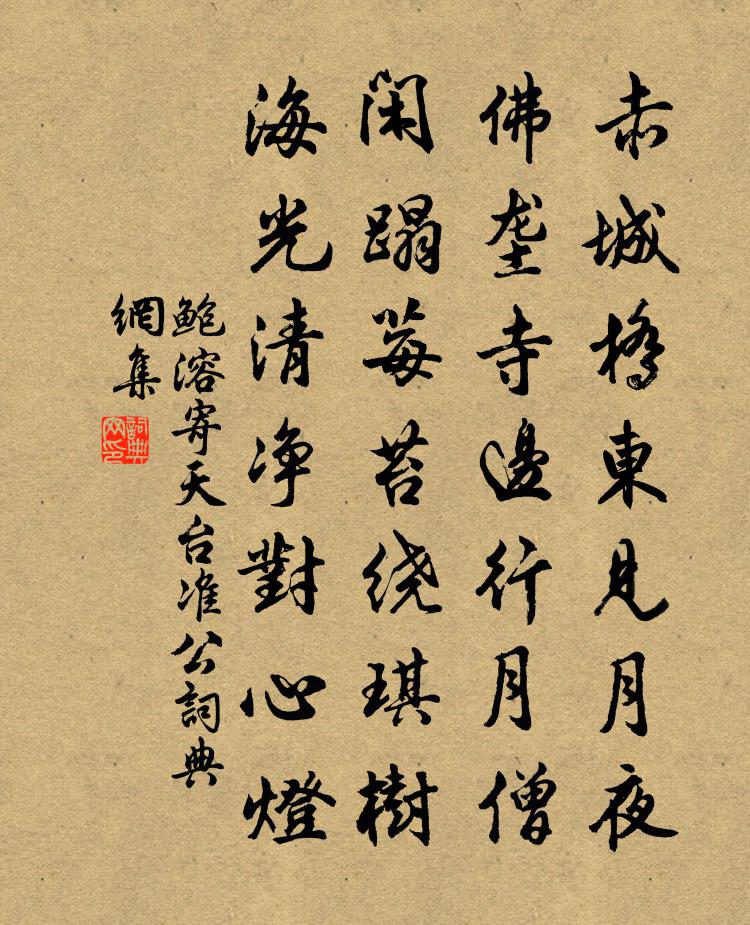 赤城橋東見月夜
佛垄寺邊行月僧
閑蹋莓苔绕琪樹
海光清净對心燈
鲍溶寄天台准公詞典
網集
詞典网印